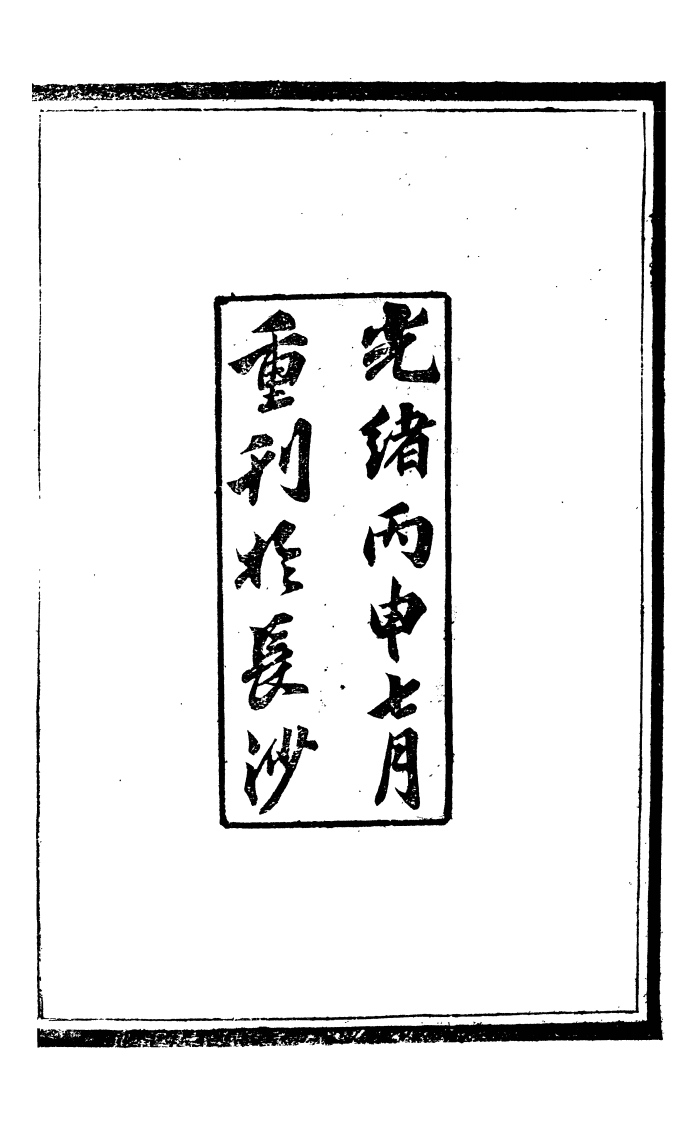 光緒丙申七月
重刊於長沙